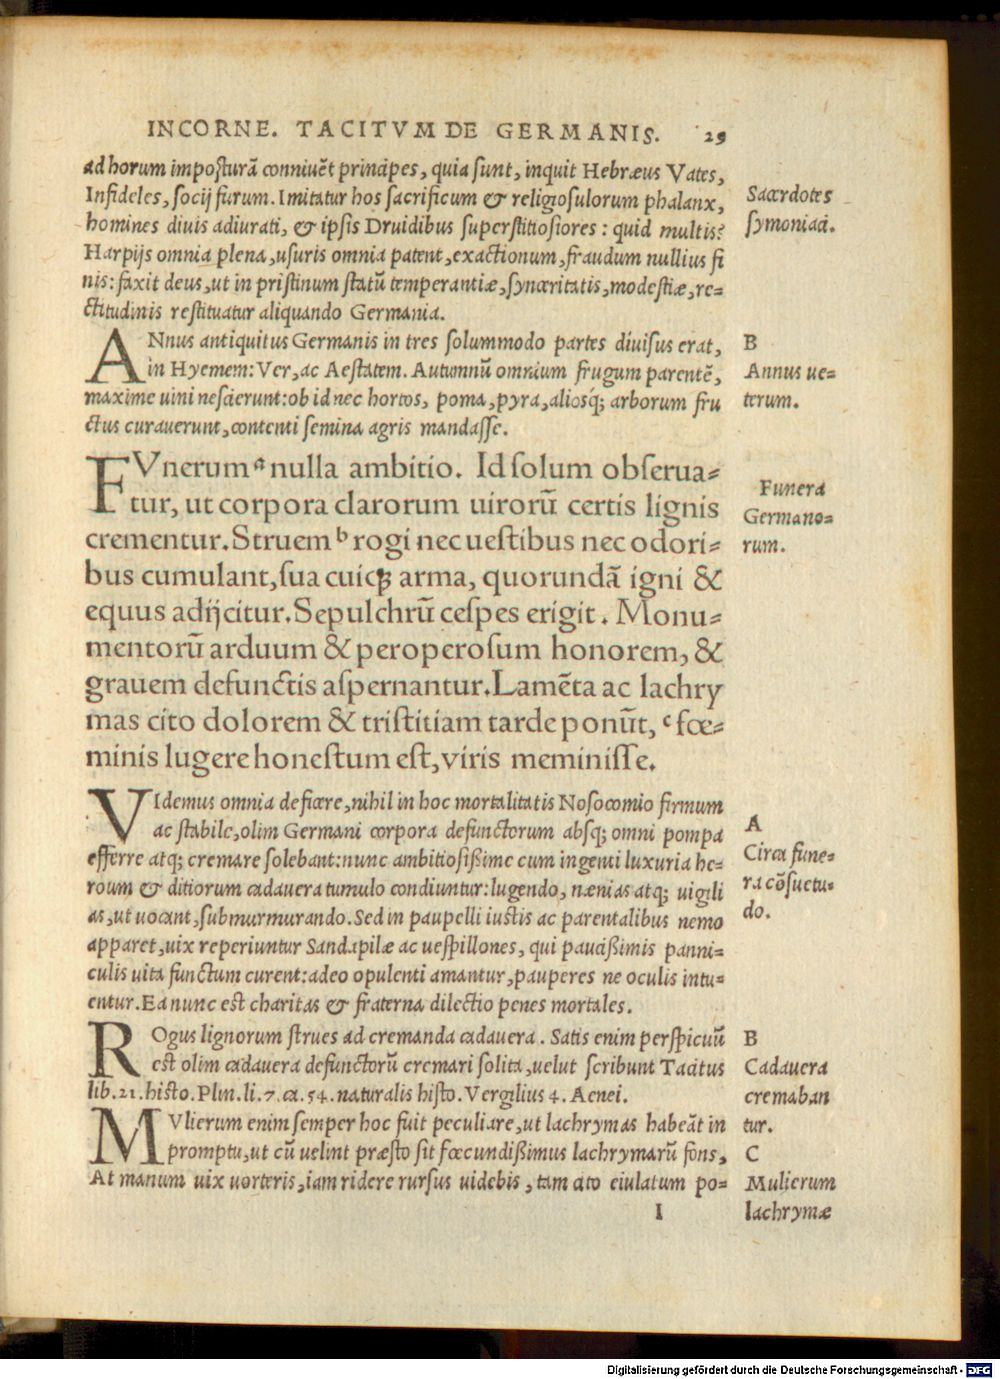 IN CORNE. TACITVM DE GERMANIS. 29
ad horum imposturā conniuēt principes, quia sunt, inquit Hebræus Vates,
Infideles, socij furum. Imitatur hos sacrificum & religiosulorum phalanx,
homines diuis adiurati, & ipsis Druidibus superstitiosiores: quid multis?
Harpijs omnia plena, usuris omnia patent, exactionum, fraudum nullius fi
nis: faxit deus, ut in pristinum statū temperantiæ, synceritatis, modestiæ, re=
ctitudinis restituatur aliquando Germania.
Sacerdotes
symoniaci.
ANnus antiquitus Germanis in tres solummodo partes diuisus erat,
in Hyemem: Ver, ac Aestatem. Autumnū omnium frugum parentē,
maxime uini nescierunt: ob id nec hortos, poma, pyra, aliosq; arborum fru
ctus curauerunt, contenti semina agris mandasse.
B
Annus ue=
terum.
FVnerum a nulla ambitio. Id solum obserua=
tur, ut corpora clarorum uirorū certis lignis
crementur. Struem b rogi nec uestibus nec odori=
bus cumulant, sua cuiq; arma, quorundā igni &
equus adijcitur. Sepulchrū cespes erigit. Monu=
mentorū arduum & peroperosum honorem, &
grauem defunctis aspernantur. Lamēta ac lachry
mas cito dolorem & tristitiam tarde ponūt, c fœ=
minis lugere honestum est, viris meminisse.
Funera
Germano=
rum.
VIdemus omnia deficere, nihil in hoc mortalitatis Nosocomio firmum
ac stabile, olim Germani corpora defunctorum absq; omni pompa
efferre atq; cremare solebant: nunc ambitiosißime cum ingenti luxuria he=
roum & ditiorum cadauera tumulo condiuntur: lugendo, nænias atq; uigili
as, ut uocant, submurmurando. Sed in paupelli iustis ac parentalibus nemo
apparet, uix reperiuntur Sandapilæ ac uespillones, qui paucißimis panni=
culis uita functum curent: adeo opulenti amantur, pauperes ne oculis intu=
entur. Ea nunc est charitas & fraterna dilectio penes mortales.
A
Circa fune=
ra cōsuetu=
do.
ROgus lignorum strues ad cremanda cadauera. Satis enim perspicuū
est olim cadauera defunctorū cremari solita, uelut scribunt Tacitus
lib. 21. histo. Plin. li. 7. ca. 54. naturalis histo. Vergilius 4. Aenei.
MVlierum enim semper hoc fuit peculiare, ut lachrymas habeāt in
promptu, ut cū uelint præsto sit fœcundißimus lachrymarū fons,
At manum uix uorteris, iam ridere rursus uidebis, tam cito eiulatum po=
B
Cadauera
cremaban
tur.
C
Mulierum
lachrymæ
I
Digitalisierung gefördert durch die Deutsche Forschungsgemeinschaft - DFG